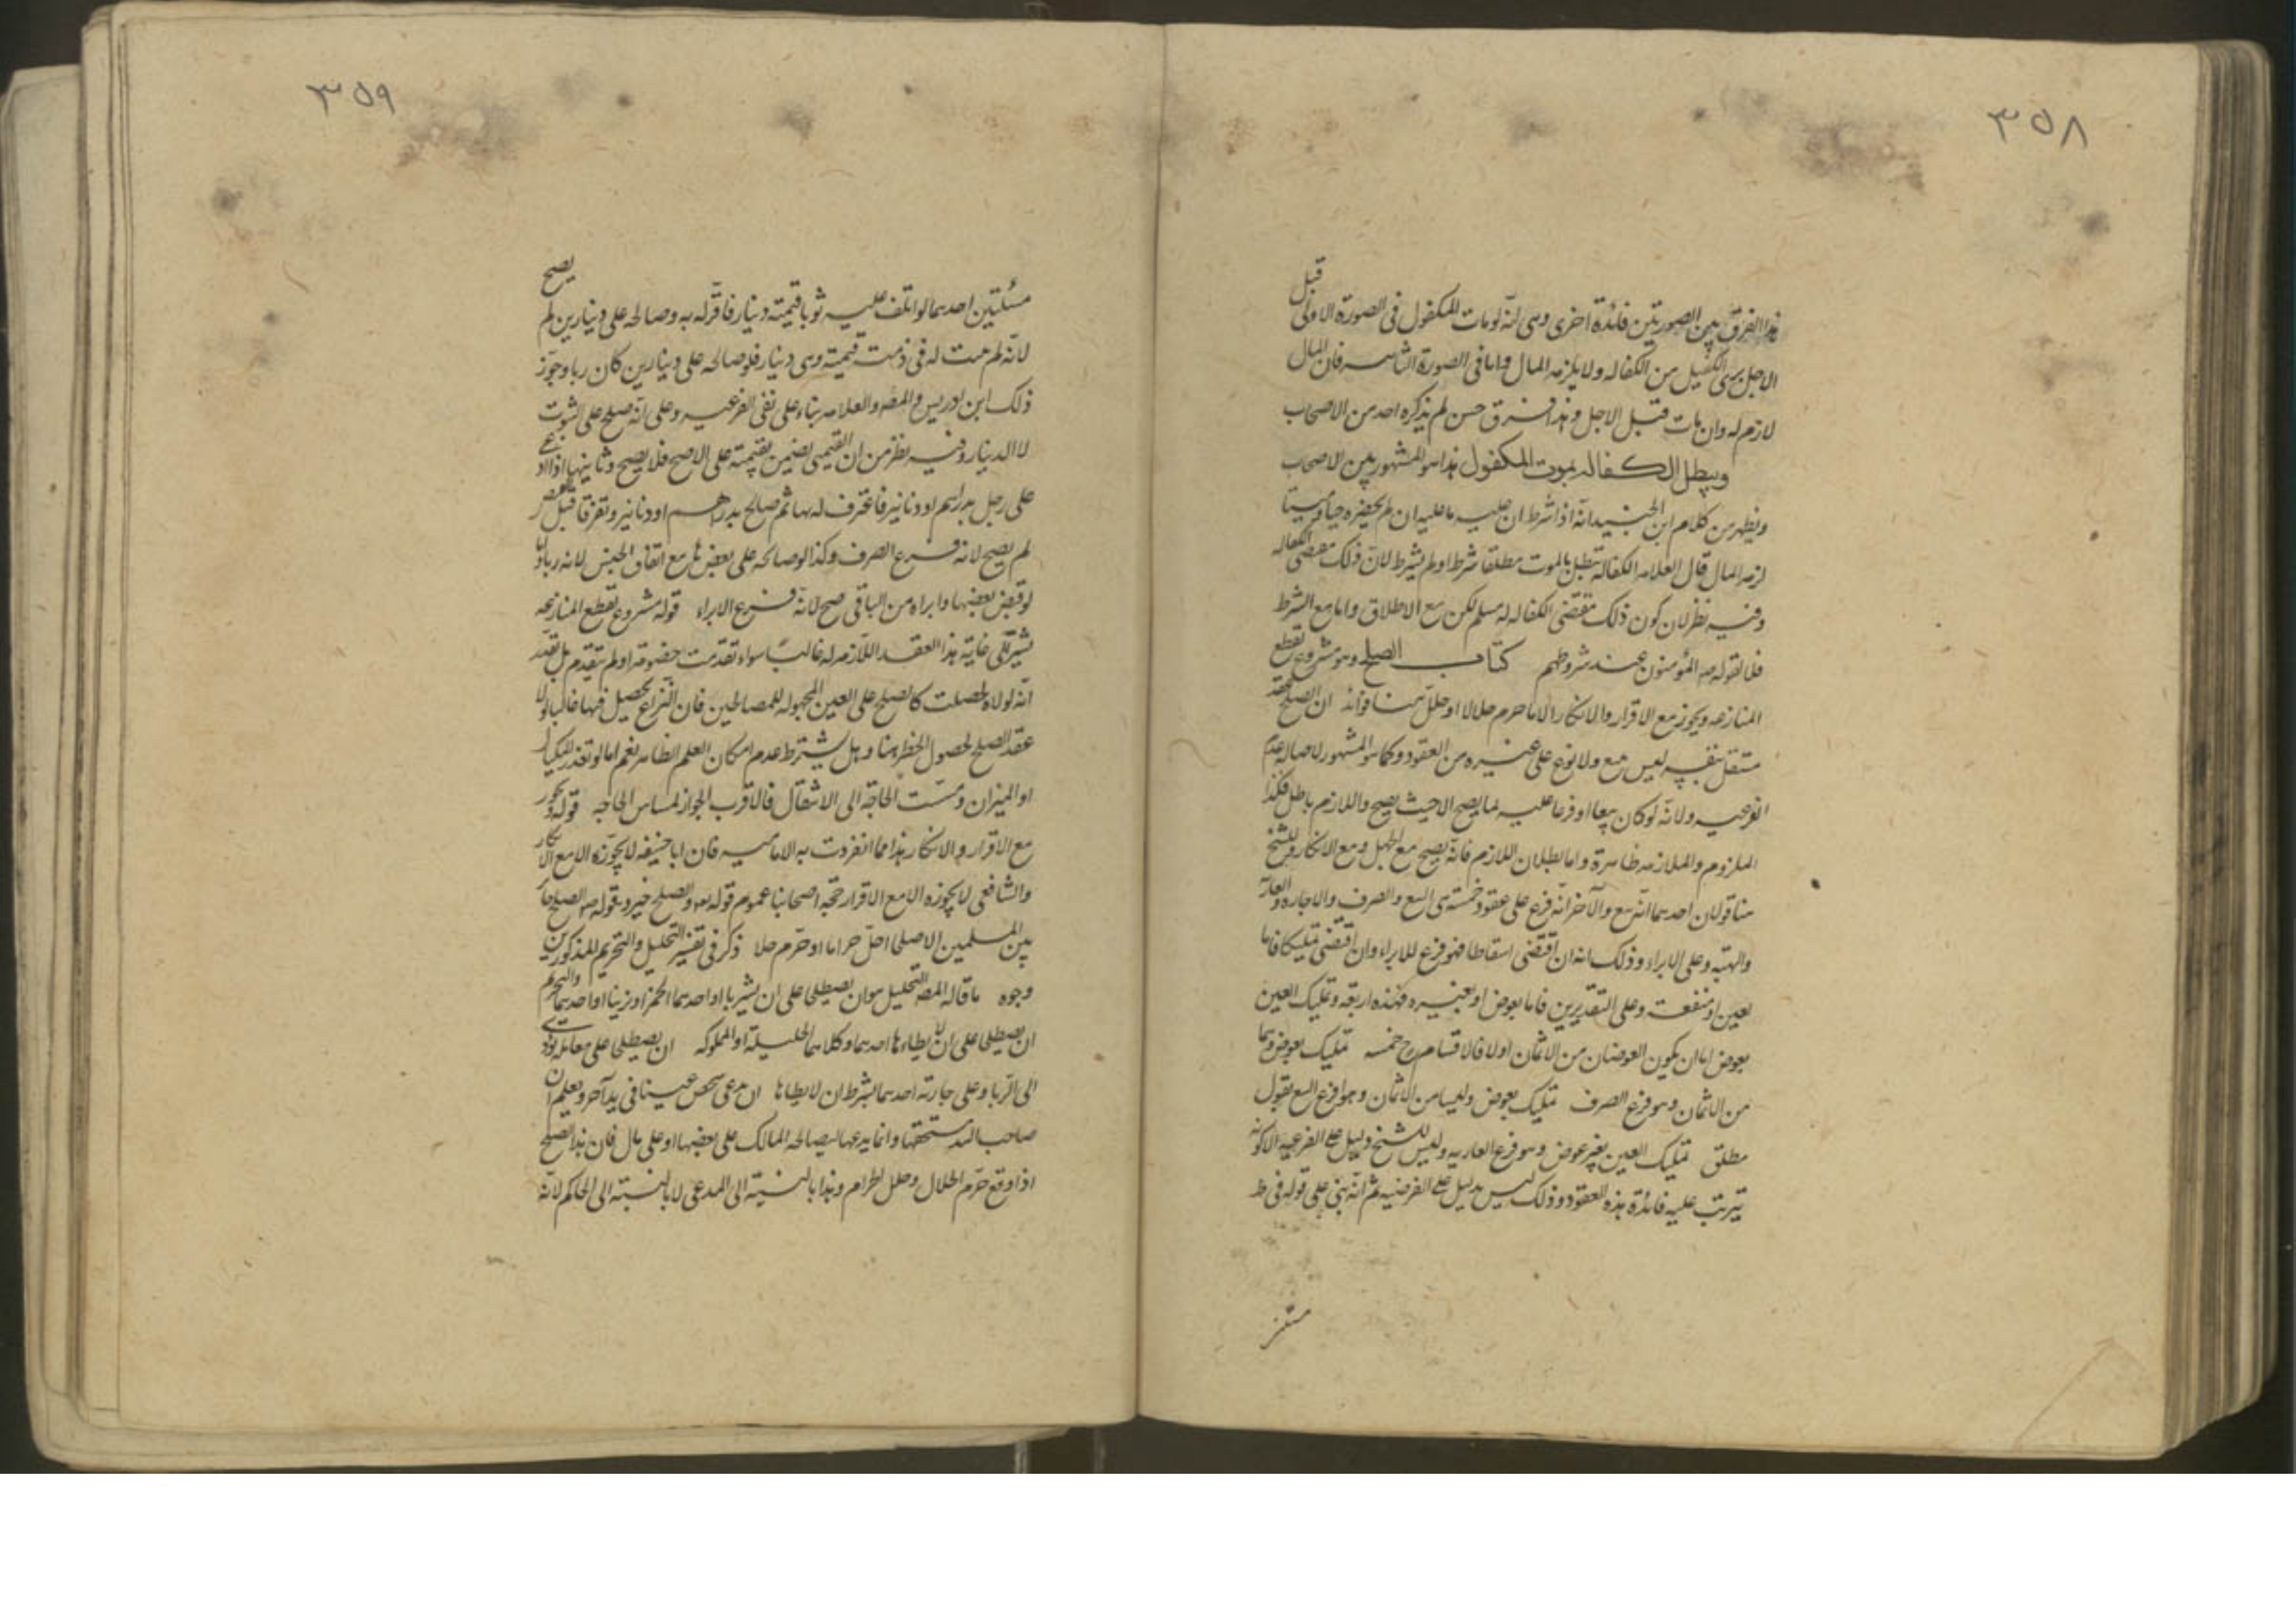 ٣٥٨
هذا الفرق بين الصورتين فائدة اخرى وهى انّه لو مات المكفول فى الصورة الاولى قبل
الاجل برئ الكفيل من الكفاله ولا يلزمه المال واما فى الصورة الثانيه فان المال
لازم له وان مات قبل الاجل وهذا فرق حسن لم يذكره احد من الاصحاب
ويبطل الكفاله بموت المكفول هذا هو المشهور بين الاصحاب
ويظهر من كلام ابن الجنيد انّه اذا شرط ان عليه ما عليه ان لم يحضره حيا وميتا
لزمه المال قال العلامه الكفالة تبطل بالموت مطلقا شرط او لم يشرط لانّ ذلك مقتضى الكفاله
وفيه نظر لان كون ذلك مقتضى الكفاله له مسلم لكن مع الاطلاق واما مع الشرط
فلا لقوله صه المؤمنون عند شروطهم كتاب الصلح وهو مشروع لقطع
المنازعه ويجوز مع الاقرار والانكار الا ما حرم حلالا او حلل هنا فوائد ان الصلح عقد
مستقل بنفسه ليس بيع ولا نوع على غيره من العقود وكما هو المشهور لاصاله عدم
الفرعيه ولانّه لو كان بيعا او فرعا عليه لما يصح الا حيث يصح واللازم باطل فكذا
الملزوم والملازمه ظاهرة واما بطلان اللازم فانّه يصح مع الجهل ومع الانكار وللشيخ
هنا قولان احدهما انّه بيع والآخر انّه فرع على عقود خمسة هى البيع والصرف والاجاره والعاريه
والهبه وعلى الابراء وذلك انه ان اقتضى اسقاطا فهو فرع للابراء وان اقتضى تمليكا فاما
بعين او منفعت وعلى التقديرين فاما بعوض او بغيره فهذه اربعة وتمليك العين
بعوض اما ان يكون العوضان من الاثمان اولا فالاقسام ح خمسه تمليك بعوض وهما
من الاثمان وهو فرع الصرف تمليك بعوض وليسا من الاثمان وهو فرع البيع بقول
مطلق تمليك العين بغير عوض وهو فرع العاريه وليس للشيخ دليل على الفرعيه الا كونه
يترتب عليه فائدة هذه العقود وذلك ليس بدليل على الفرضيه ثم انّه بنى على قوله فى ط
٣٥٩
مسئلتين احدهما لو اتلف عليه ثوبا قيمته دينار فاقرّ له به وصالحه على دينارين لم يصح
لانّه لم يثبت له فى ذمته قيمته وهى دينار فلو صالحه على دينارين كان ربا وجوّز
ذلك ابن ادريس والمصه والعلامه بناء على نفى الفرعيه وعلى انّه صلح على الثوب
لا الدينار وفيه نظر من ان القيمى يضمن بقيمته على الاصح فلا يصح وثانيها اذا ادعى
على رجل بدراهم او دنانير فاعترف له بها ثم صالح بدراهم او دنانير وتفرقا قبل القبض
لم يصح لانه فرع الصرف وكذا لو صالحه على بعضها مع اتفاق الجنس لانه ربا ولو
لو قبض بعضها وابراه من الباقى صح لانّه فرع الابراء قوله مشروع لقطع المنازعه
يشير الى غاية هذا العقد اللازمه له غالبا سواء تقدمت خصومه او لم يتقدم بل تقدّر
انّه لولاه لحصلت كالصلح على العين المجهوله للمصالحين فان النزاع يحصل فيها غالبا لولا
عقد الصلح لحصول الخطر هنا وهل يشترط عدم امكان العلم الظاهر نعم اما لو تعذر المكيال
او الميزان ومسّت الحاجة الى الانتقال فالاقرب الجواز لمساس الحاجه قوله ويجوز
مع الاقرار والانكار هذا مما انفردت به الاماميه فان ابا حنيفه لا يجوّزه الا مع الانكار
والشافعى لا يجوزه الا مع الاقرار حجة اصحابنا عموم قوله تعه والصلح خير وقوله صه الصلح جائز
بين المسلمين الا صلحا احلّ حراما او حرّم حلا ذكر فى تفسير التحليل والتحريم المذكورين
وجوه ما قاله المصه التحليل هو ان يصطلحا على ان يشربا او احدهما الخمر او يزنيا او احدهما والتحريم
ان يصطلحا على ان لا يطاءها احدهما وكلاهما الحليلة او المملوكه ان يصطلحا على معامله تؤدى
الى الربا وعلى جاريته احدهما بشرط ان لا يطاها ان يدعى شخص عينا فى يد آخر ويعلم ان
صاحب اليد مستحقها وانما يدعيها ليصالحه المالك على بعضها او على مال فان هذا الصلح
اذا وقع حرّم الحلال وحلل الحرام وهذا بالنسبة الى المدعى لا بالنسبته الى الحاكم لانّه